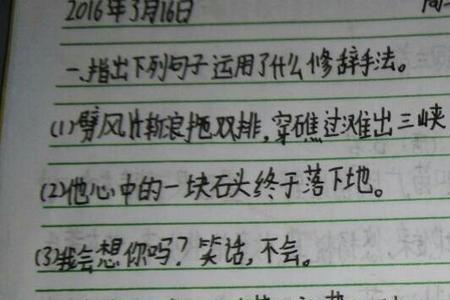 2016年3月16日 周
一、指出下列句子运用了什么修辞手法。
(1)劈风斩浪拖双排,穿礁过滩出三峡
(2)他心中的一块石头终于落下地。
(3)我会想你吗?笑话,不会。